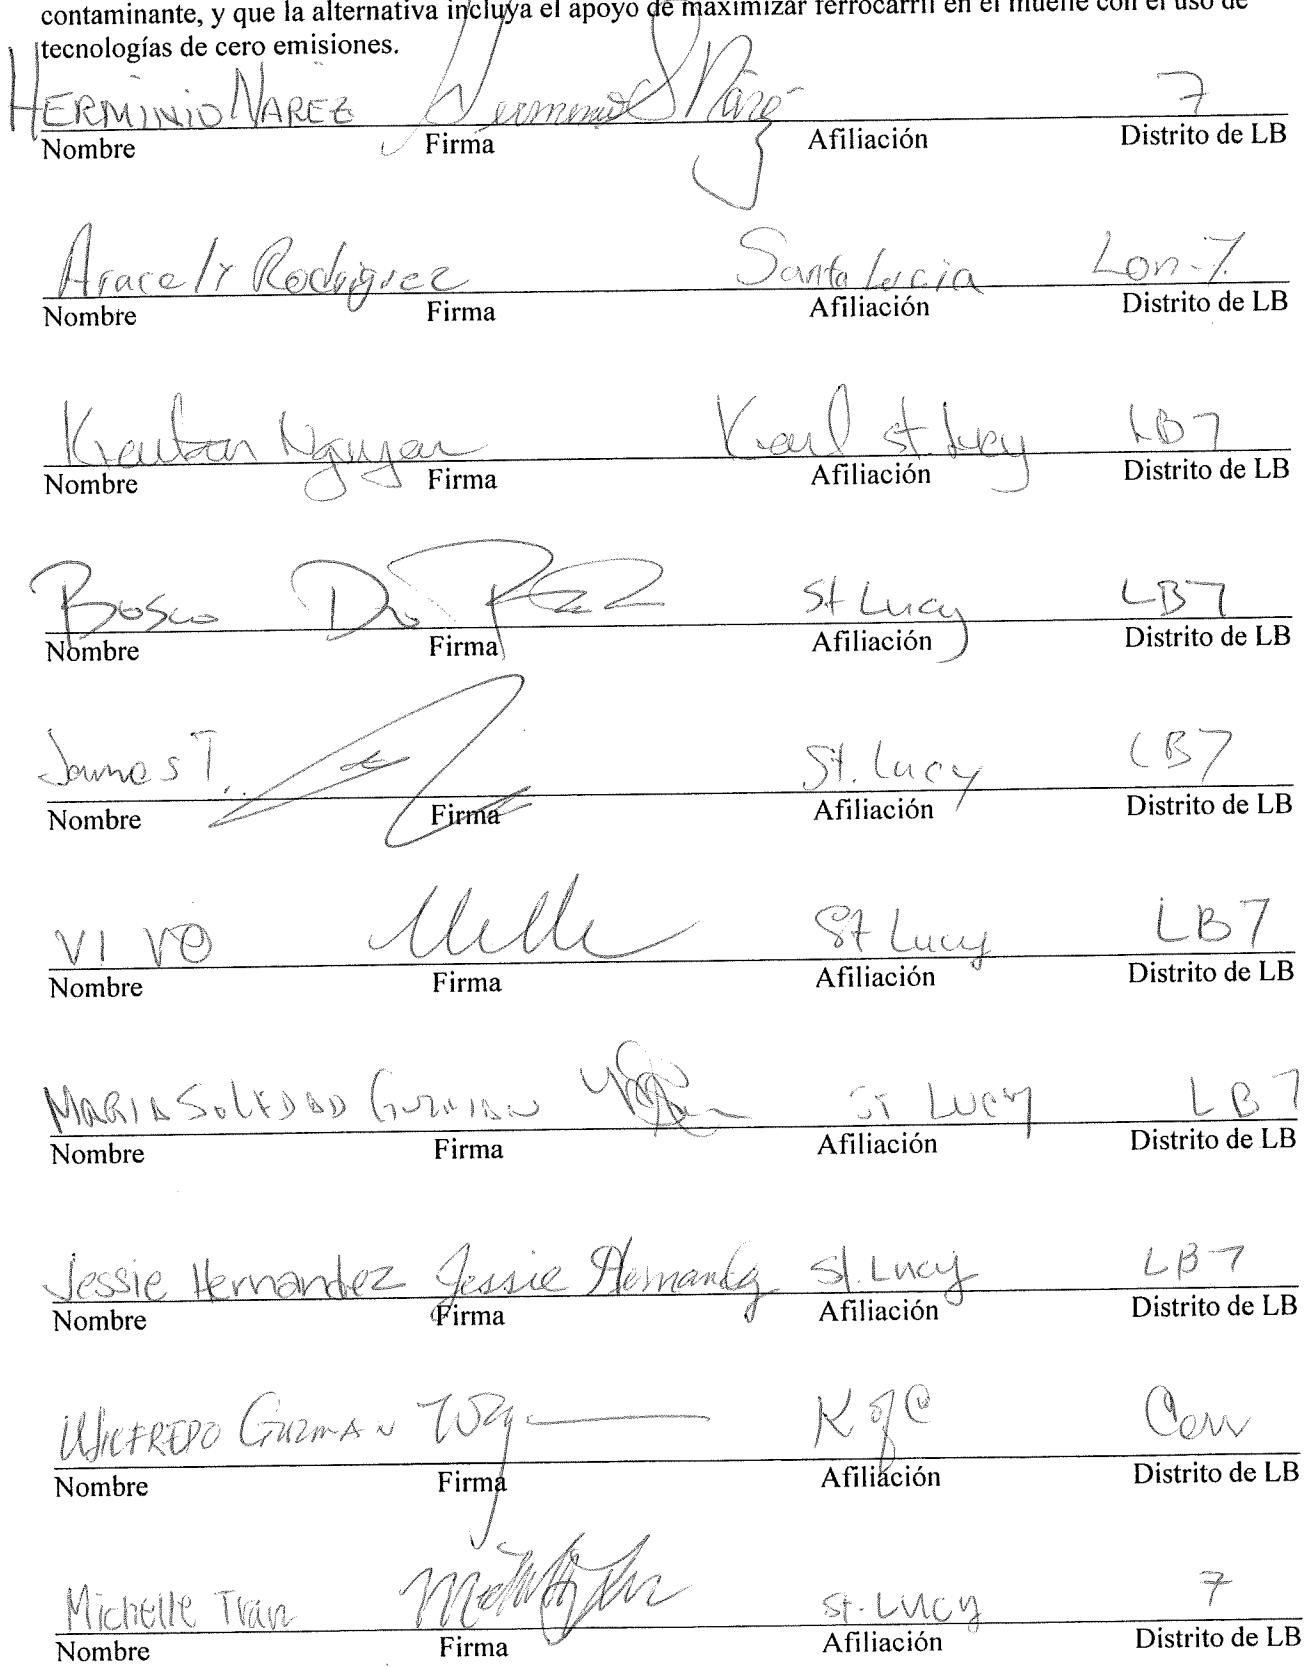 contaminante, y que la alternativa incluya el apoyo de maximizar ferrocarril en el muelle con el uso de
tecnologías de cero emisiones.
HERMINIO NAREZ 7
Nombre Firma Afiliación Distrito de LB
Aracely Rodriguez Santa Lucia Lon-7
Nombre Firma Afiliación Distrito de LB
Nguyen St. Lucy LB7
Nombre Firma Afiliación Distrito de LB
Bosco St Lucy LB7
Nombre Firma Afiliación Distrito de LB
James T. St. Lucy LB7
Nombre Firma Afiliación Distrito de LB
VI VO St Lucy LB7
Nombre Firma Afiliación Distrito de LB
MARIA SOLEDAD GUZMAN ST LUCY LB7
Nombre Firma Afiliación Distrito de LB
Jessie Hernandez Jessie Hernandez St. Lucy LB7
Nombre Firma Afiliación Distrito de LB
WILFREDO GUZMAN K of C
Nombre Firma Afiliación Distrito de LB
Michelle Tran St. Lucy 7
Nombre Firma Afiliación Distrito de LB